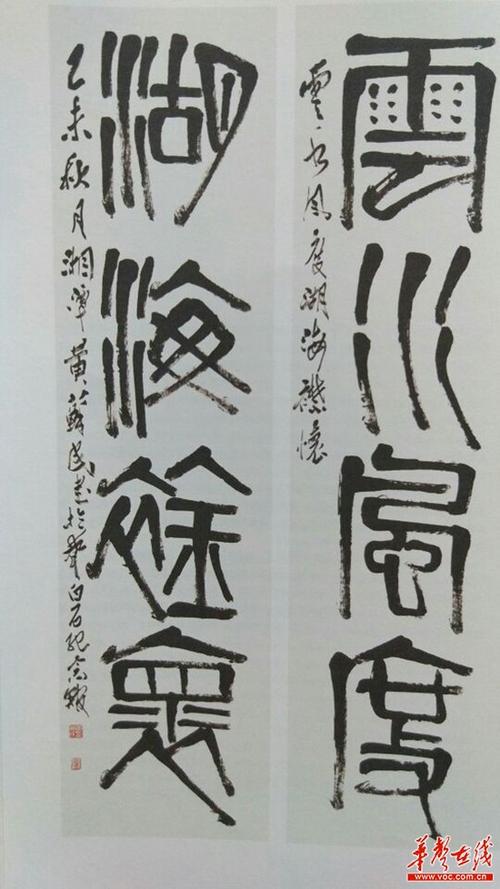 雲水風度
雲水風度湖海襟懷
湖海襟懷
乙未秋月湘潭黄蘇民書於齊白石紀念館
華聲在线
www.voc.com.cn